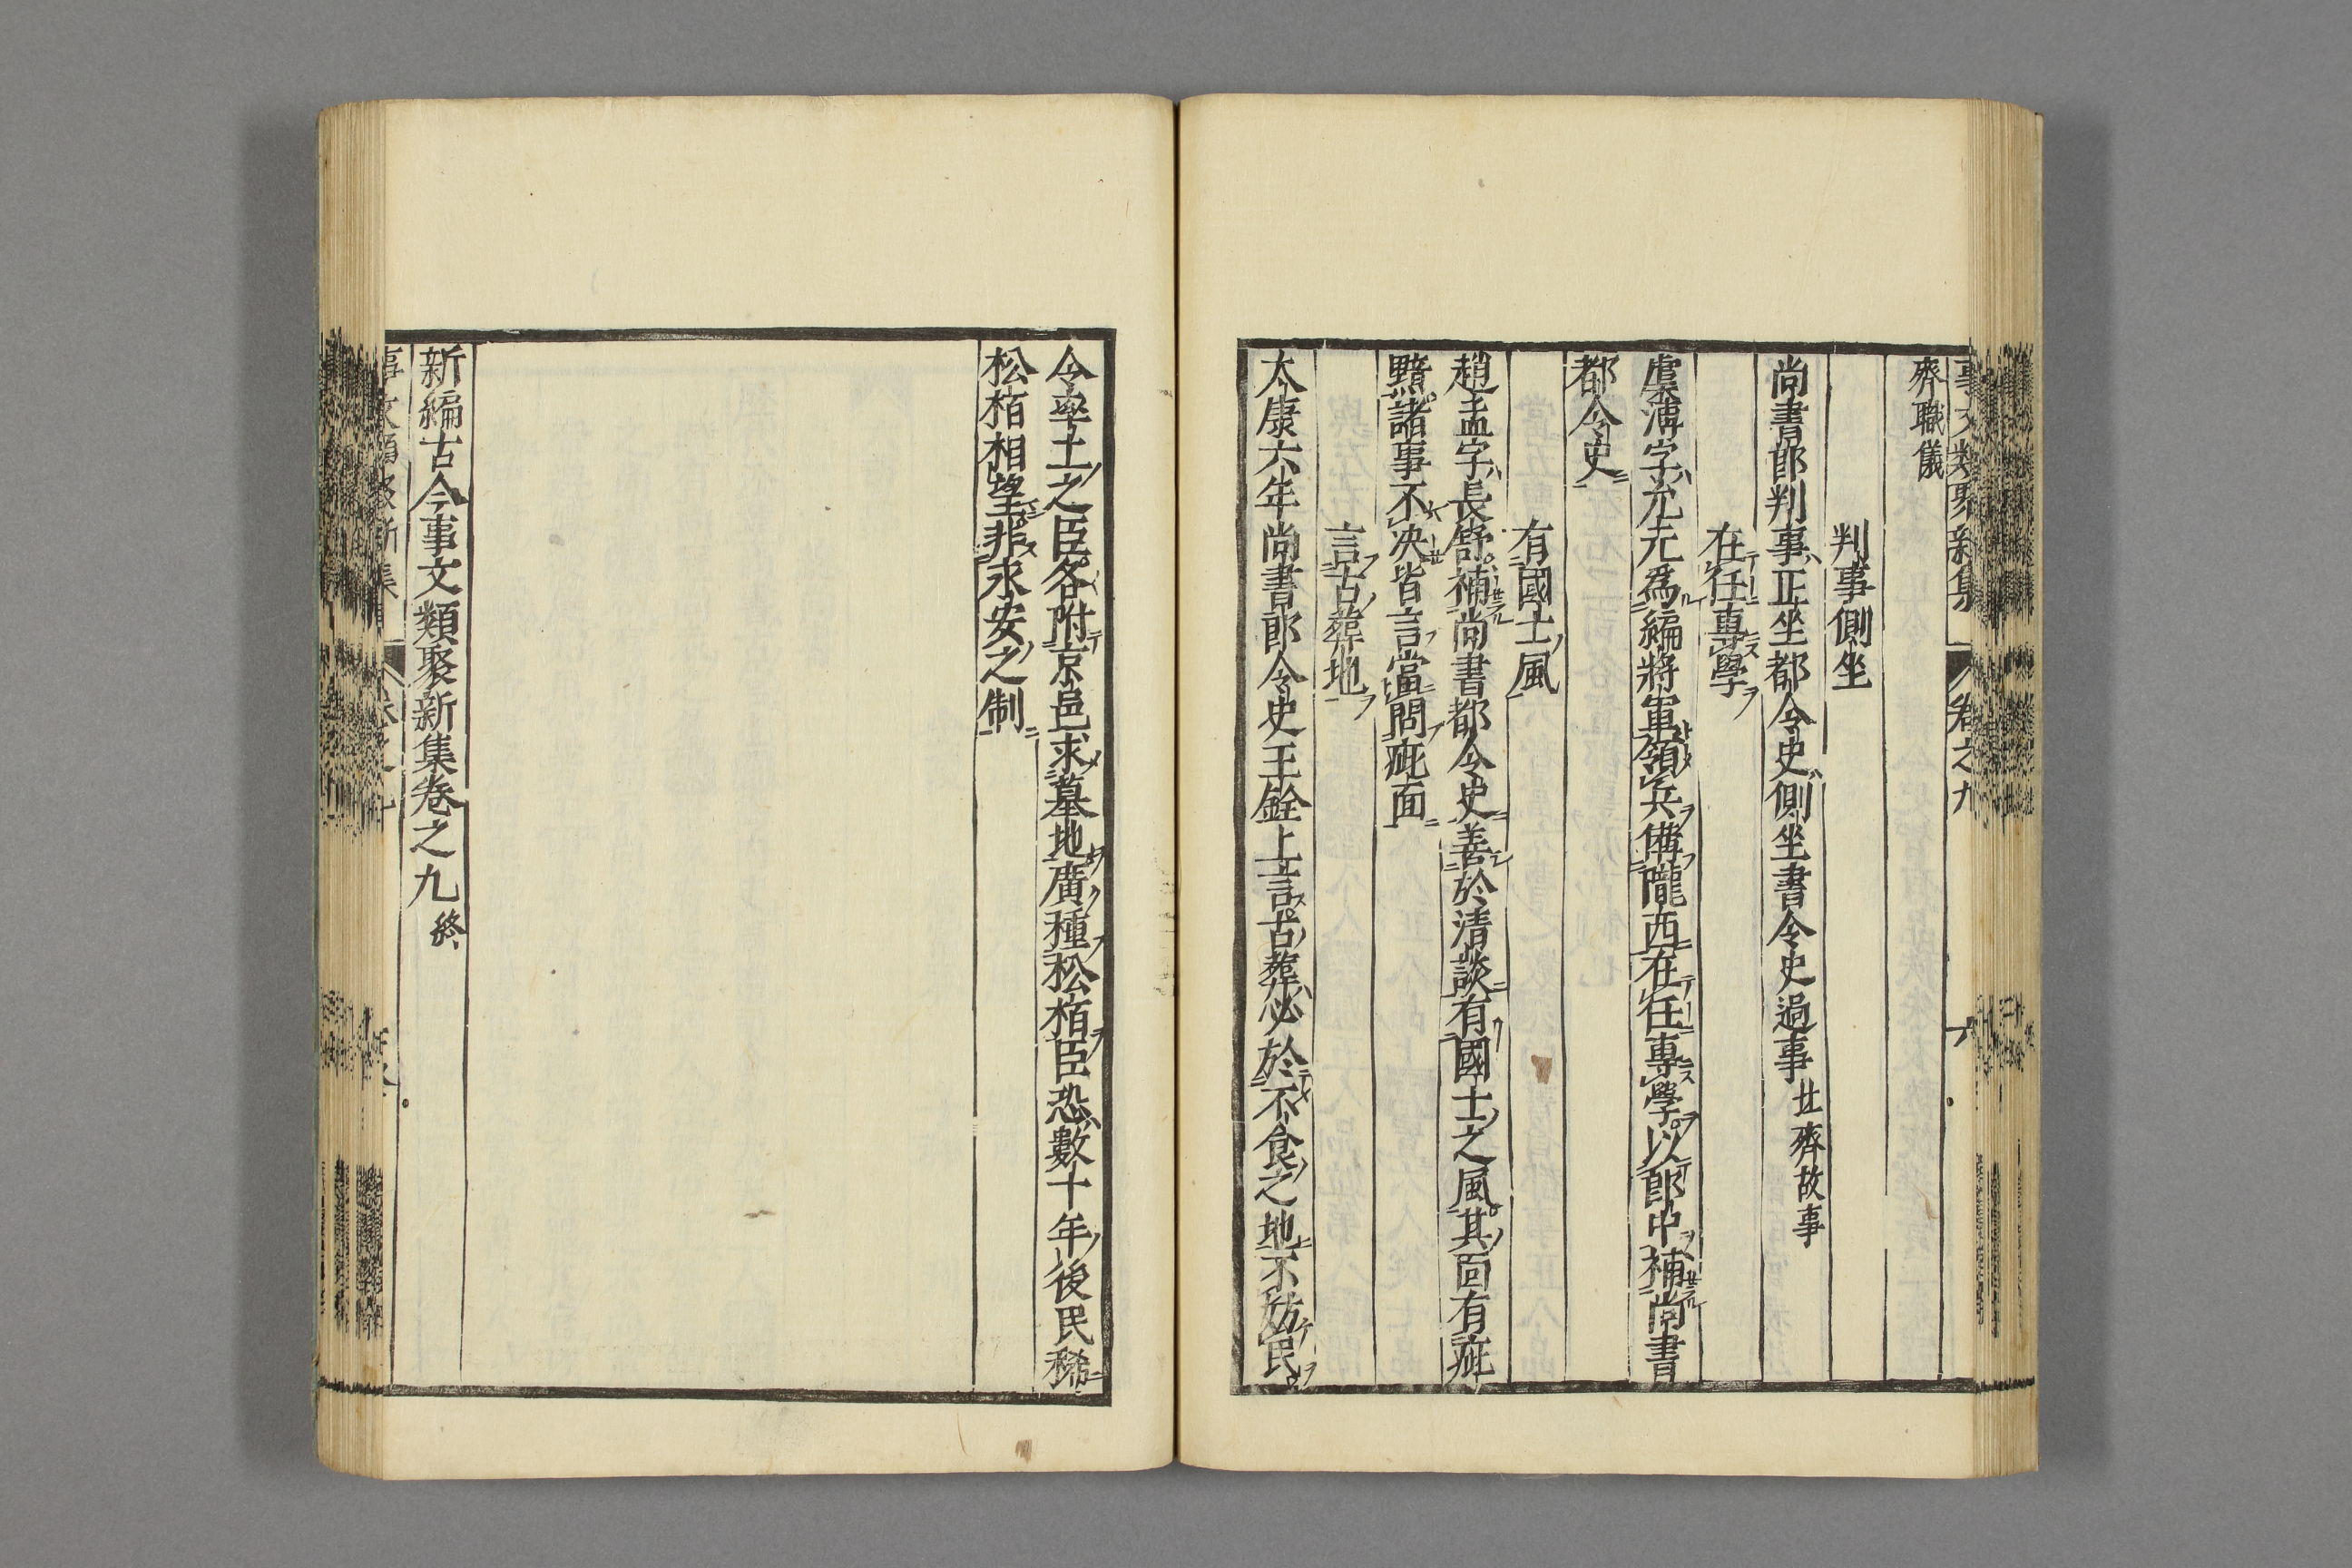 齊職儀
判事側坐
尚書郎判事正坐都令史側坐書令史過事北齊故事
在任專學
虞溥字允元爲編將軍領兵備隴西在任專學以郎中補尚書
都令史
有國士風
趙孟字長舒補尚書都令史善於清談有國士之風其面有疵
黯諸事不決皆言當問疵面
言古葬地
太康六年尚書郎令史王銓上言古葬必於不食之地不妨民
今率土之臣各附京邑求墓地廣種松栢臣恐數十年後民稀
松栢相望非永安之制
新編古今事文類聚新集卷之九終